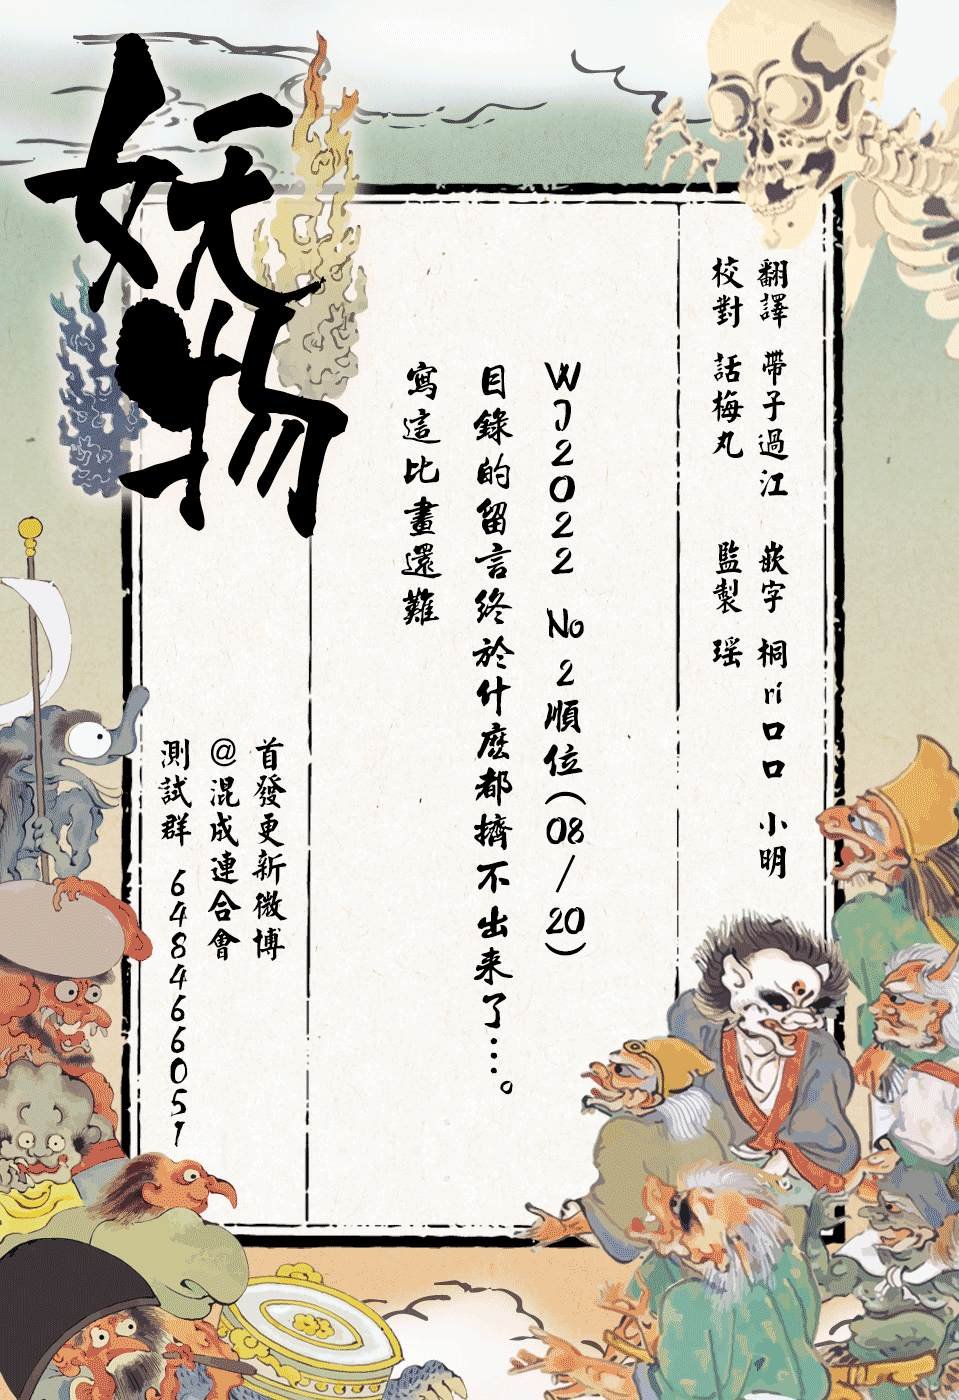 妖物
翻譯 帶子過江 嵌字 桐ri口口 小明
校對 話梅丸 監製 瑶
WJ2022 No 2順位(08/20)
目錄的留言終於什麼都擠不出来了…。
寫這比畫還難
首發更新微博
@混成連合會
測試群 648466051